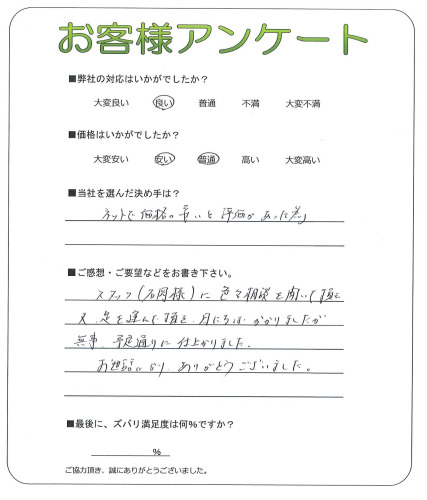 お客様アンケート
■弊社の対応はいかがでしたか?
大変良い 良い 普通 不満 大変不満
■価格はいかがでしたか?
大変安い 安い 普通 高い 大変高い
■当社を選んだ決め手は?
ネットで価格の安いと評価があった為
■ご感想・ご要望などをお書き下さい。
スタッフ(石岡様)に色々相談を聞いて頂き
又、足を運んで頂き、月にちは かかりましたが
無事、予定通りに仕上がりました。
お世話になり、ありがとうございました。
■最後に、ズバリ満足度は何%ですか?
%
ご協力頂き、誠にありがとうございました。